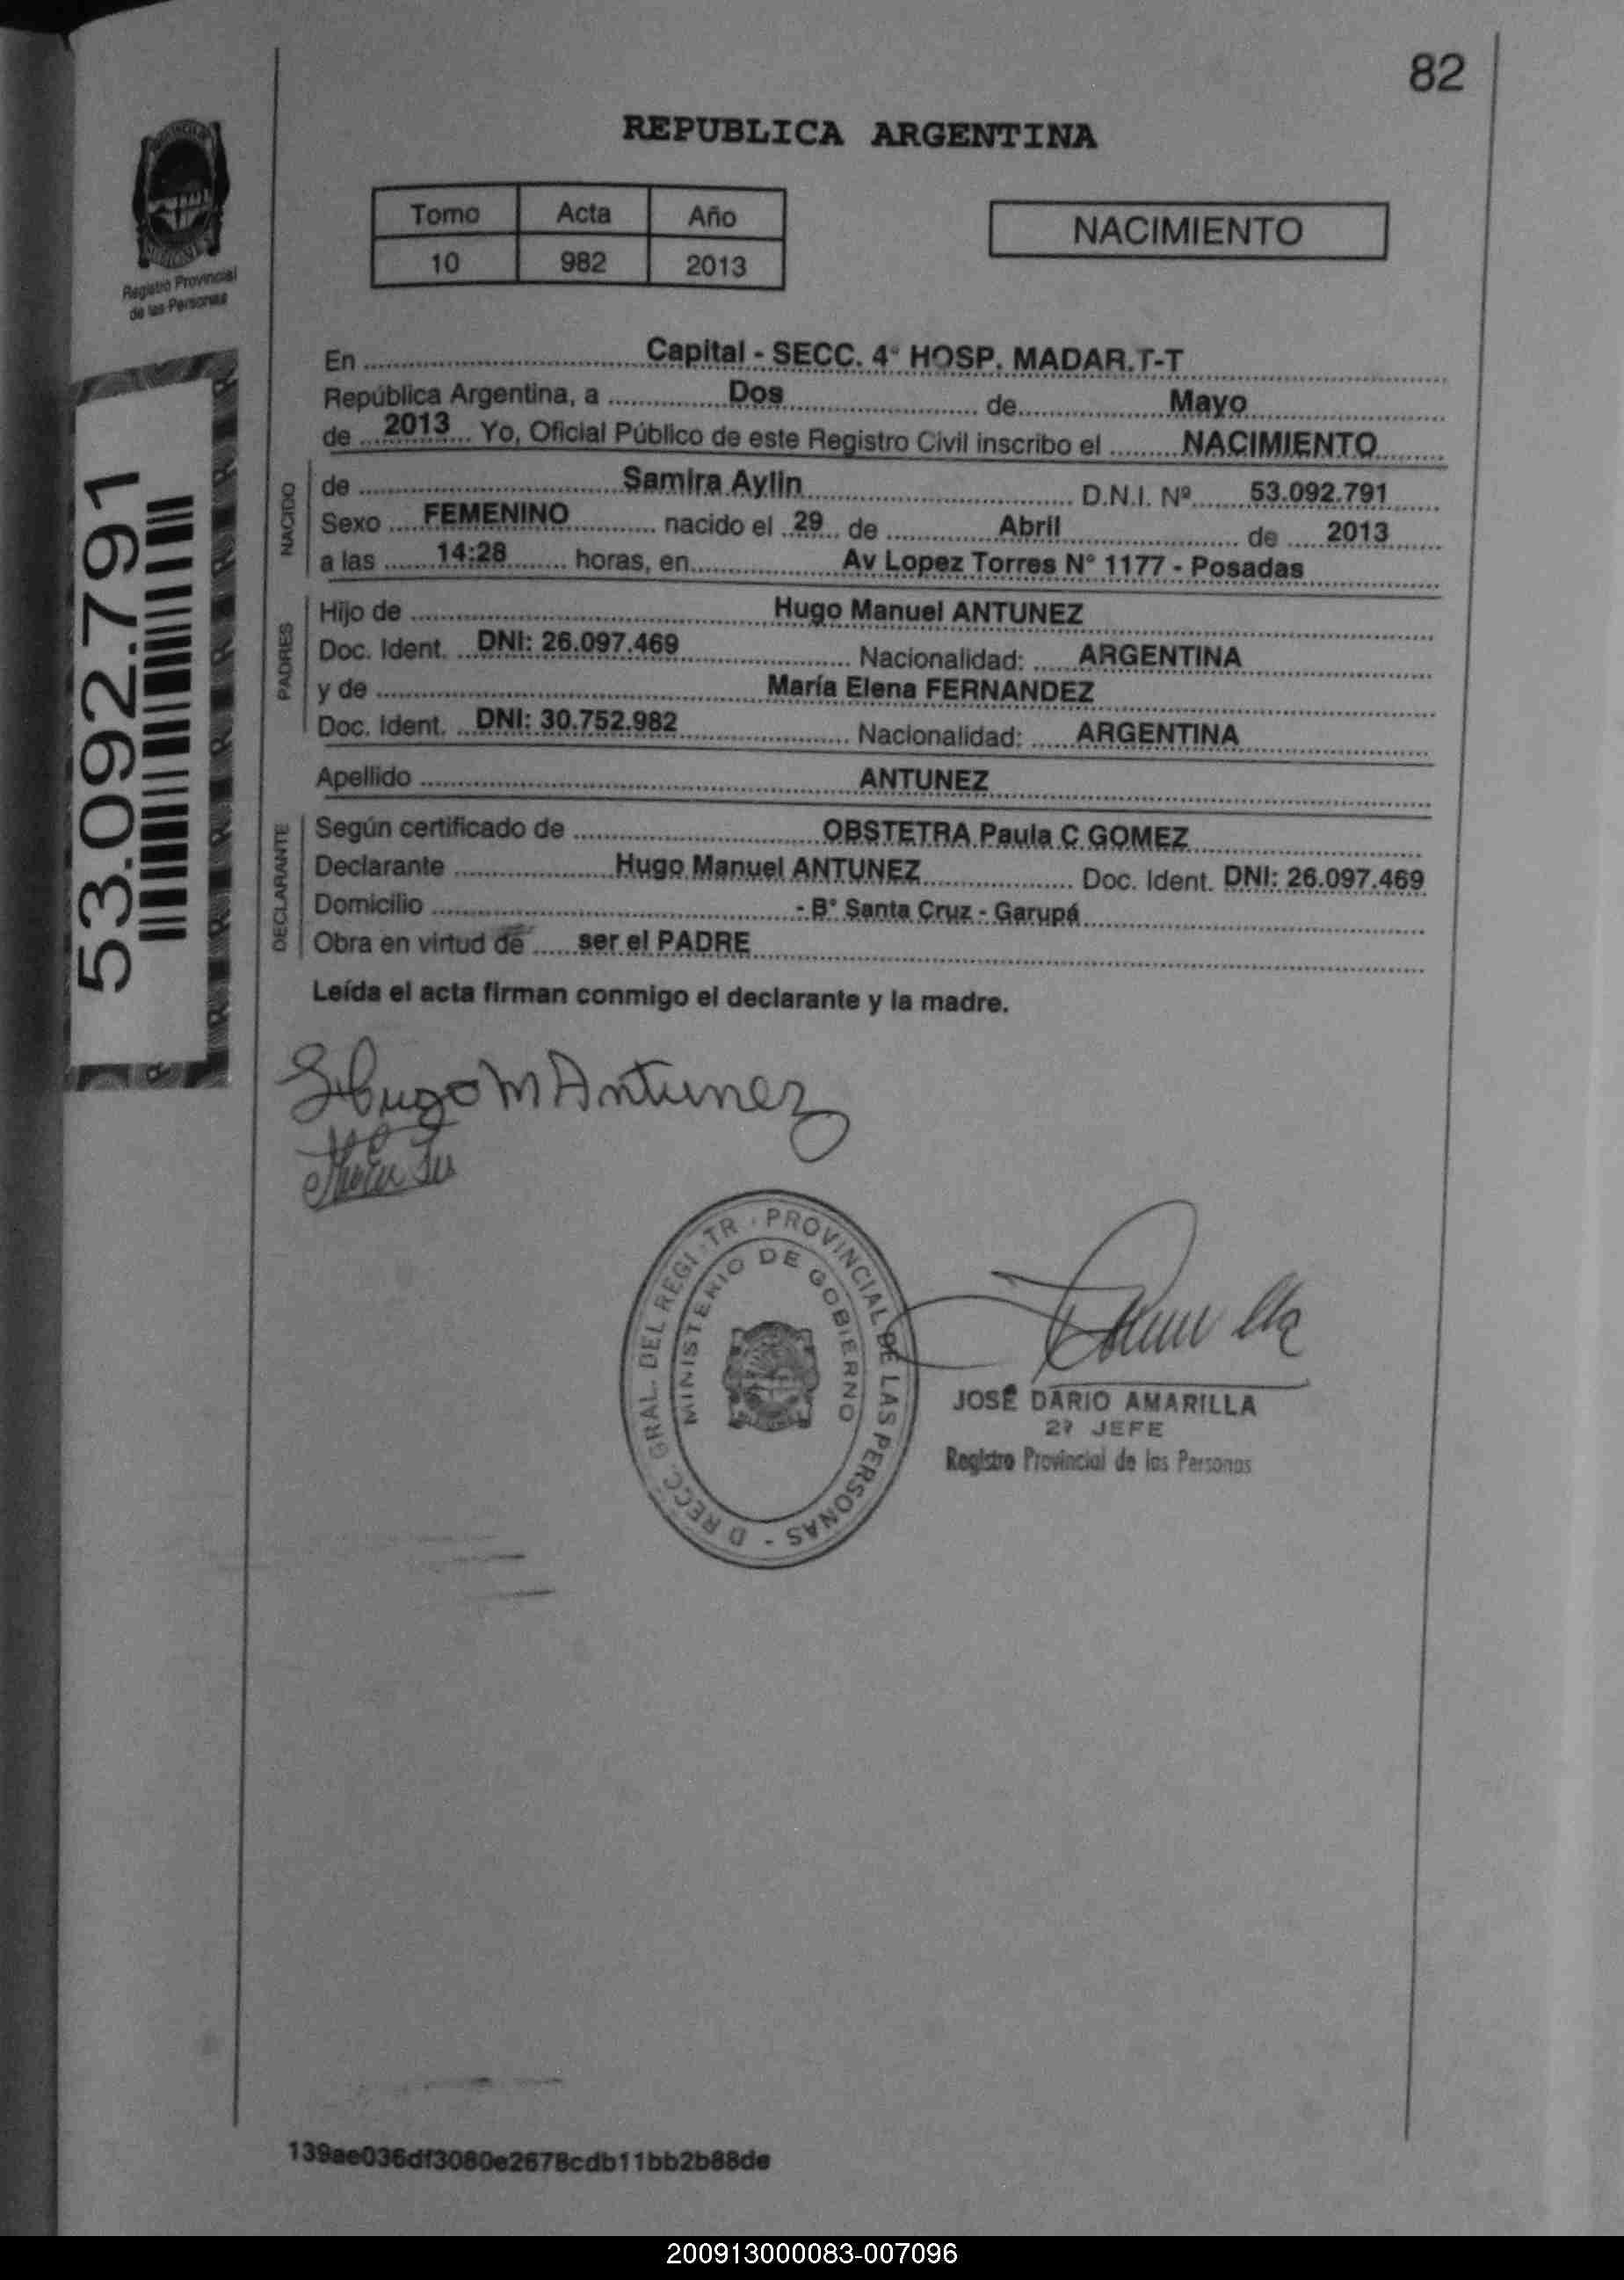 82
REPUBLICA ARGENTINA
Tomo Acta Año
10 982 2013
NACIMIENTO
Registro Provincial
de las Personas
53.092.791
En Capital - SECC. 4° HOSP. MADAR.T-T
República Argentina, a Dos de Mayo
de 2013 Yo, Oficial Público de este Registro Civil inscribo el NACIMIENTO
NACIDO
de Samira Aylin D.N.I. Nº 53.092.791
Sexo FEMENINO nacido el 29 de Abril de 2013
a las 14:28 horas, en Av Lopez Torres N° 1177 - Posadas
PADRES
Hijo de Hugo Manuel ANTUNEZ
Doc. Ident. DNI: 26.097.469 Nacionalidad: ARGENTINA
y de María Elena FERNANDEZ
Doc. Ident. DNI: 30.752.982 Nacionalidad: ARGENTINA
Apellido ANTUNEZ
DECLARANTE
Según certificado de OBSTETRA Paula C GOMEZ
Declarante Hugo Manuel ANTUNEZ Doc. Ident. DNI: 26.097.469
Domicilio - B° Santa Cruz - Garupá
Obra en virtud de ser el PADRE
Leída el acta firman conmigo el declarante y la madre.
Hugo M Antunez
PROVINCIAL DE LAS PERSONAS - D RECC. GRAL. DEL REGI TR
MINISTERIO DE GOBIERNO
JOSE DARIO AMARILLA
2º JEFE
Registro Provincial de las Personas
139ae036df3080e2678cdb11bb2b88de
200913000083-007096